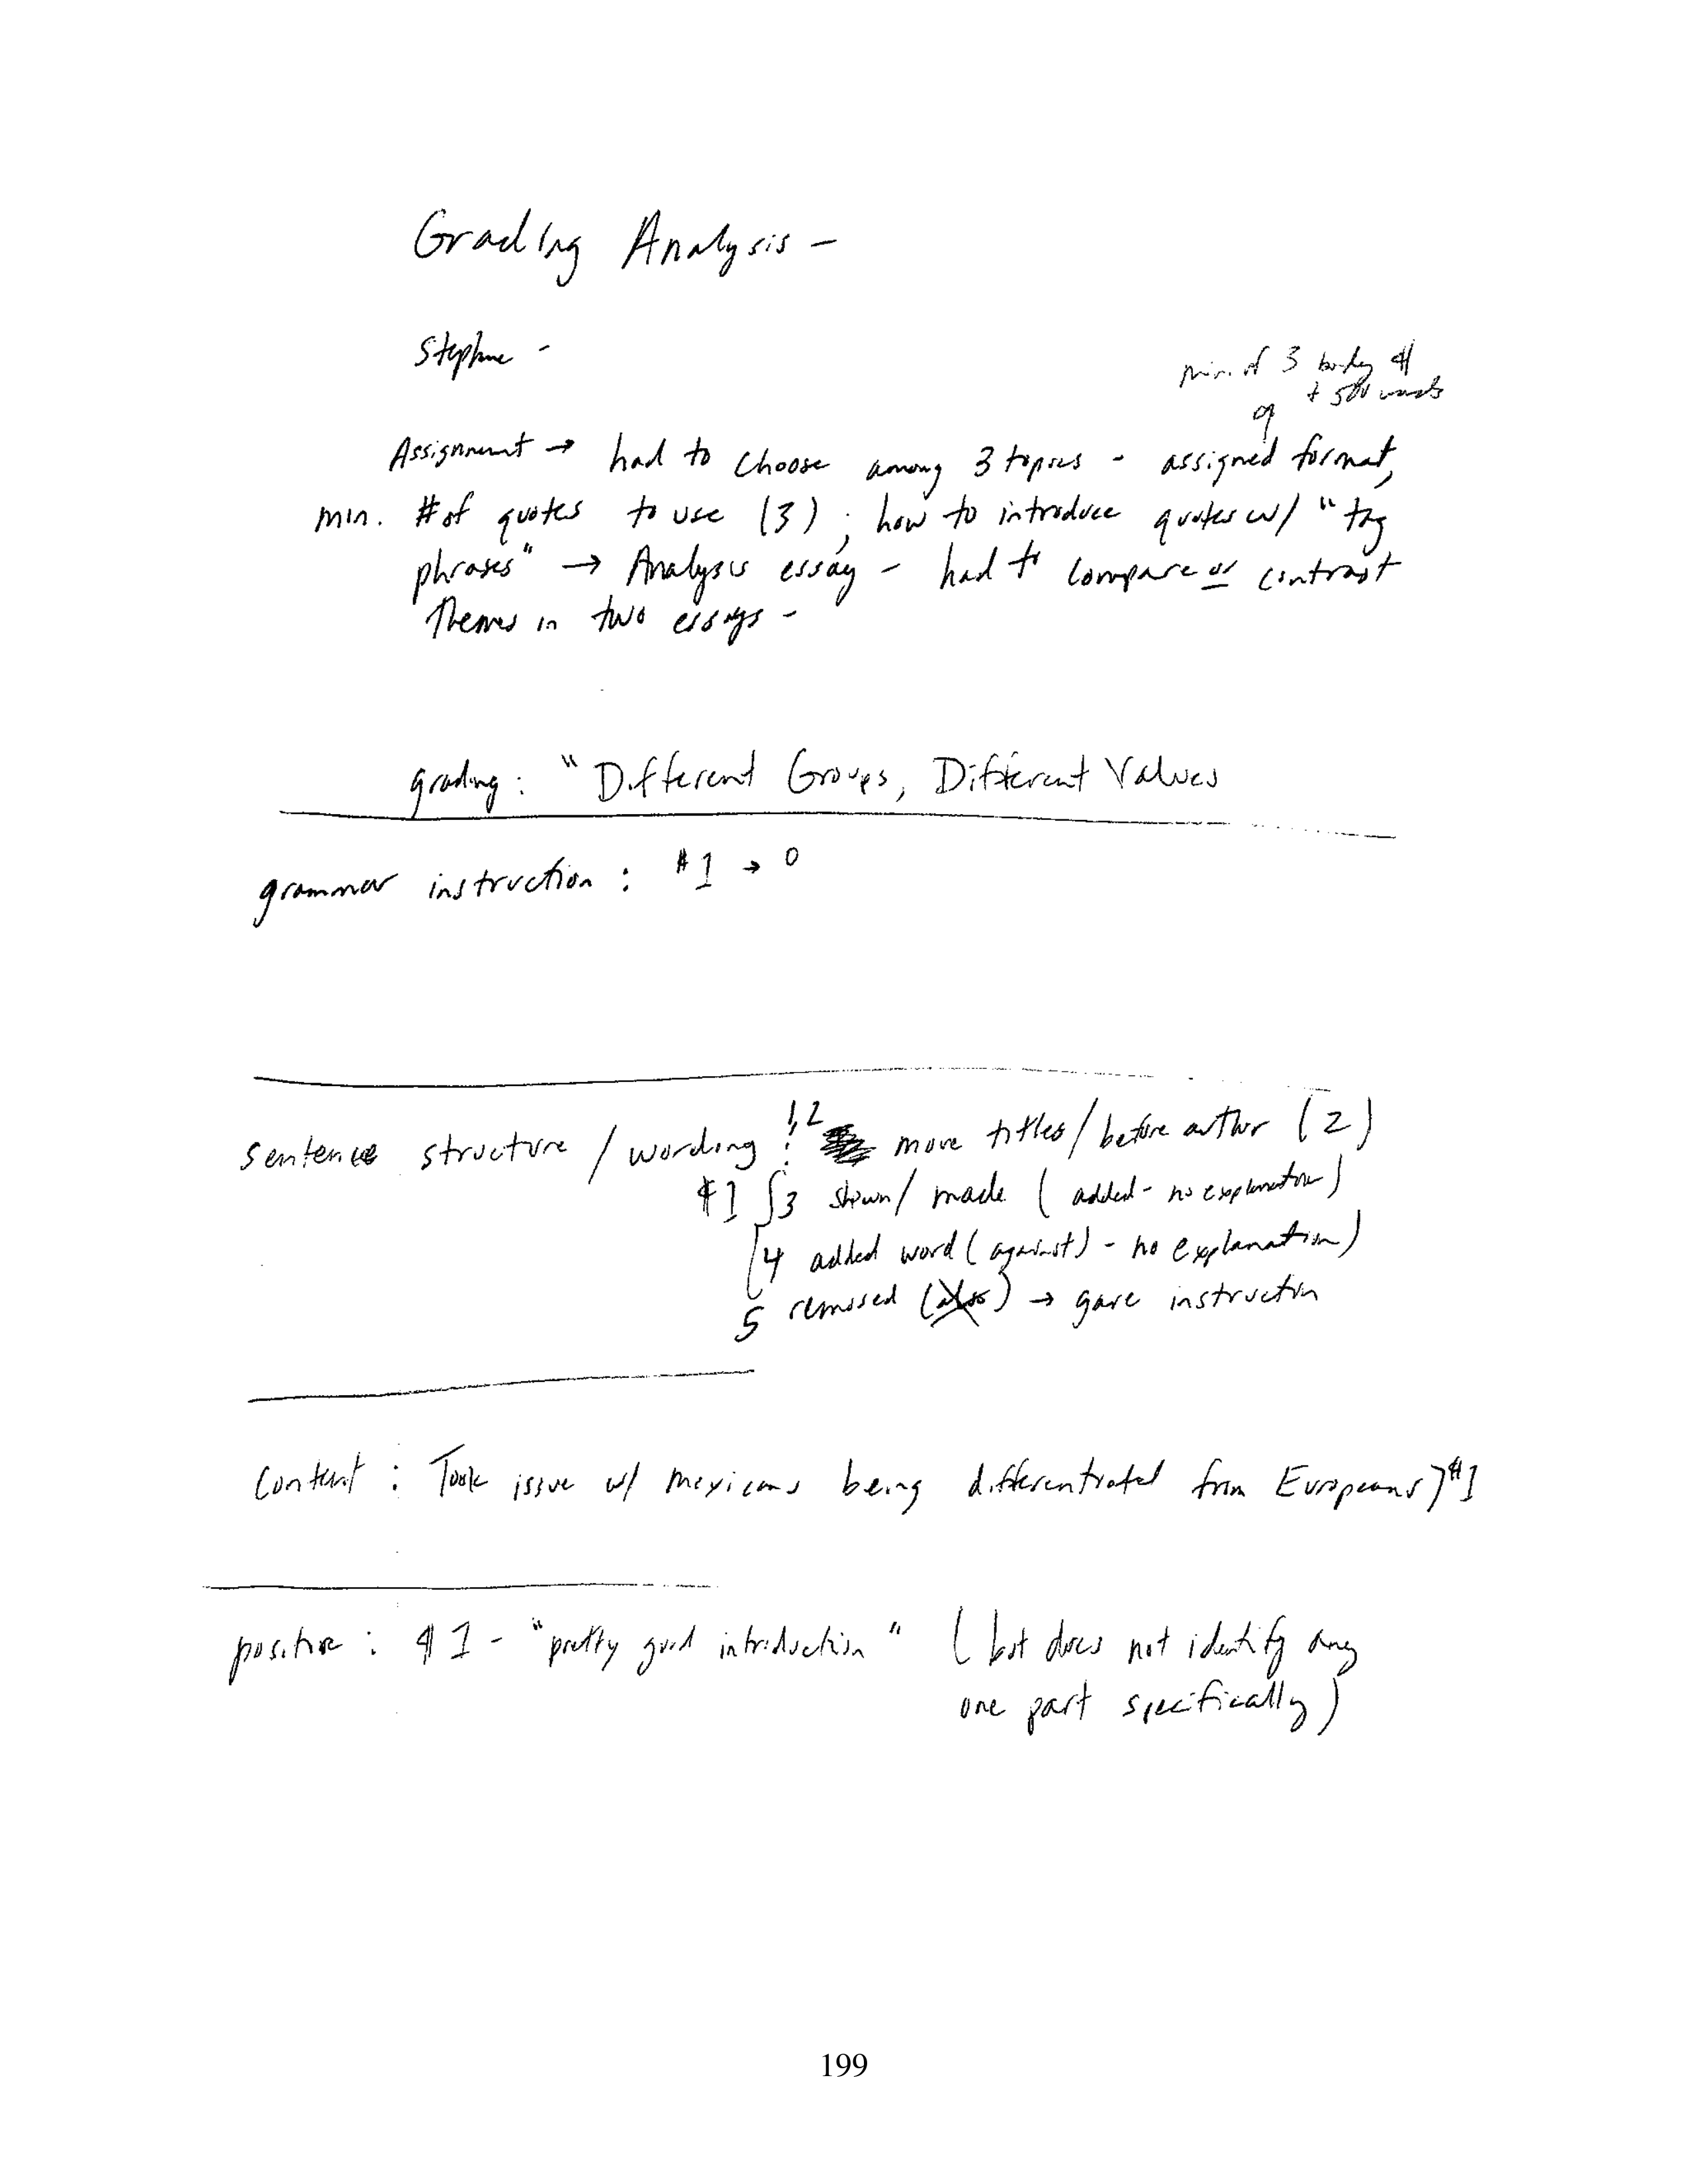 Grading Analysis -
Stephne -
min. of 3 body ¶
+ 500 words
Assignment → had to choose among 3 topics - assigned format,
min. # of quotes to use (3); how to introduce quotes w/ "tag
phrases" → Analysis essay - had to compare or contrast
Themes in two essays -
grading: "Different Groups, Different Values
grammar instruction: ¶1 → 0
sentence structure / wording: 1,2 move titles/before author (2)
¶1 3 shown/made (added - no explanation)
4 added word (against) - no explanation)
5 removed (also) → gave instruction
Content: Took issue w/ Mexicans being differentiated from Europeans] ¶1
positive: ¶1 - "pretty good introduction" (but does not identify any
one part specifically)
199